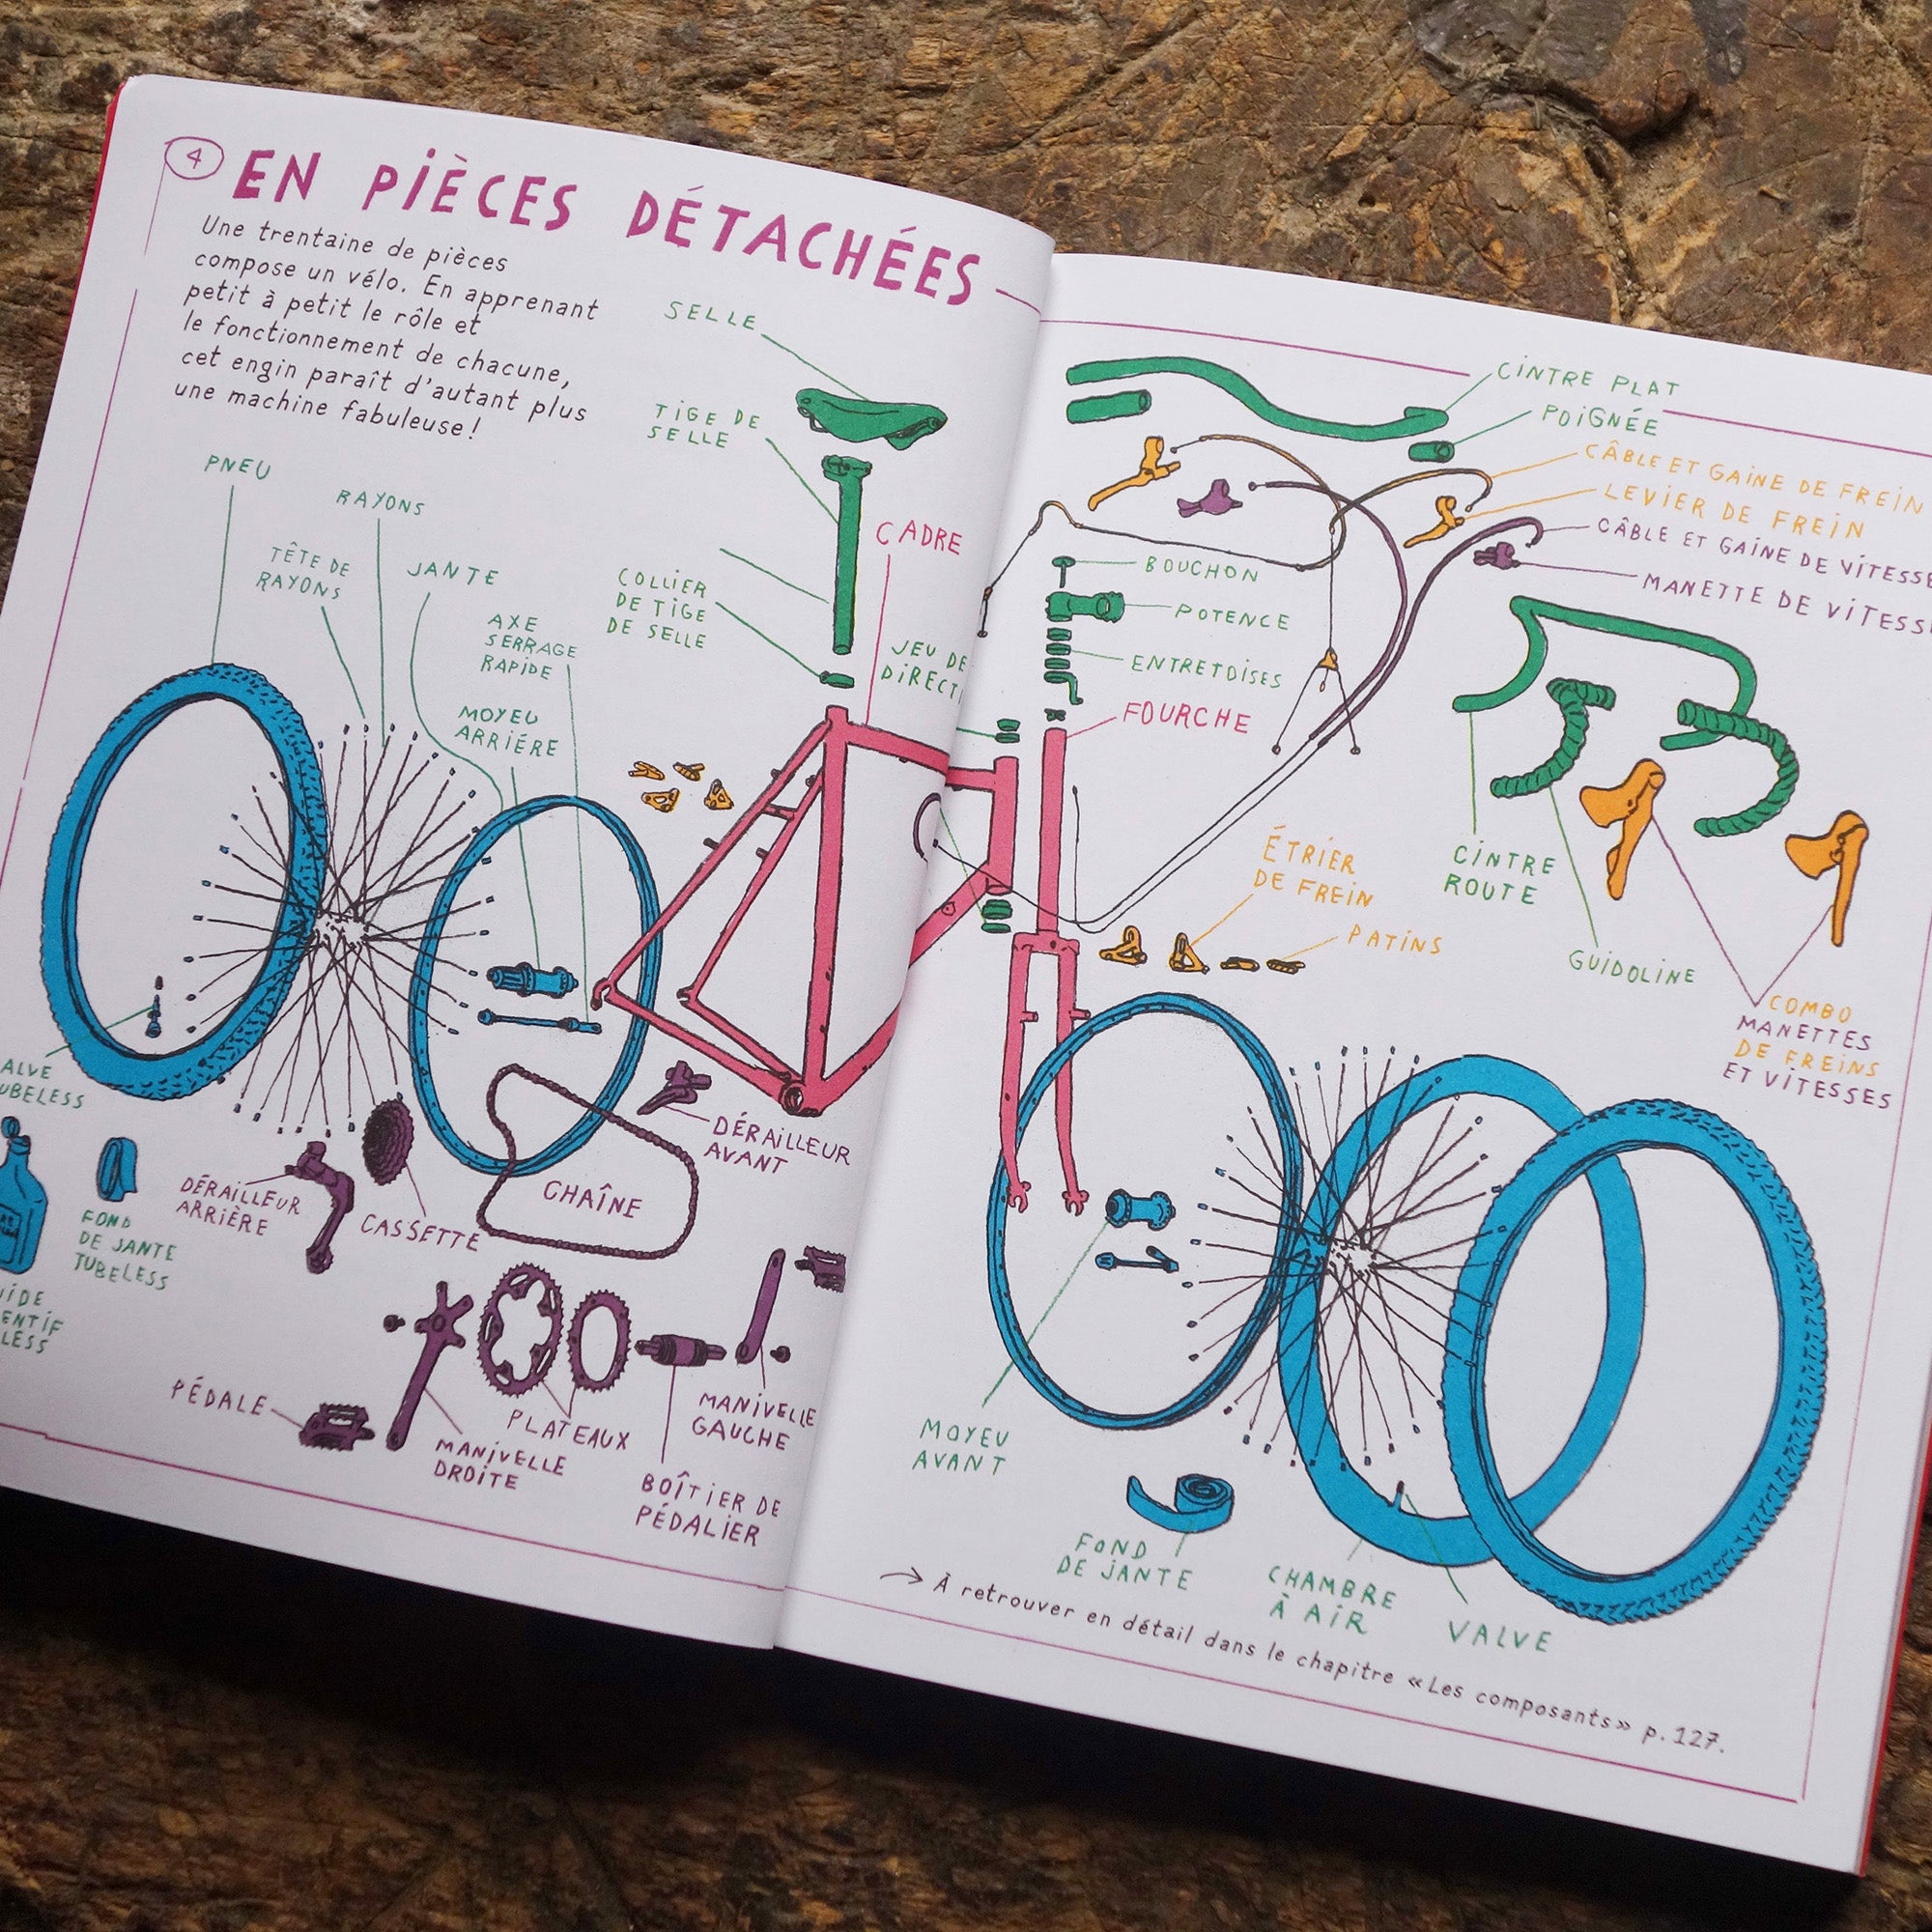 4
EN PIÈCES DÉTACHÉES
Une trentaine de pièces
compose un vélo. En apprenant
petit à petit le rôle et
le fonctionnement de chacune,
cet engin paraît d'autant plus
une machine fabuleuse!
SELLE
TIGE DE
SELLE
PNEU
RAYONS
TÊTE DE
RAYONS
JANTE
AXE
SERRAGE
RAPIDE
MOYEU
ARRIÉRE
COLLIER
DE TIGE
DE SELLE
CADRE
JEU DE
VALVE
TUBELESS
FOND
DE JANTE
TUBELESS
DÉRAILLEUR
ARRIÈRE
CASSETTE
CHAÎNE
DÉRAILLEUR
AVANT
PÉDALE
MANIVELLE
DROITE
PLATEAUX
BOÎTIER DE
PÉDALIER
MANIVELLE
GAUCHE
CINTRE PLAT
POIGNÉE
CÂBLE ET GAINE DE FREIN
LEVIER DE FREIN
CÂBLE ET GAINE DE VITESSE
MANETTE DE VITESSE
BOUCHON
POTENCE
ENTRETOISES
FOURCHE
ÉTRIER
DE FREIN
PATINS
CINTRE
ROUTE
GUIDOLINE
COMBO
MANETTES
DE FREINS
ET VITESSES
MOYEU
AVANT
FOND
DE JANTE
CHAMBRE
À AIR
VALVE
→ À retrouver en détail dans le chapitre «Les composants» p. 127.